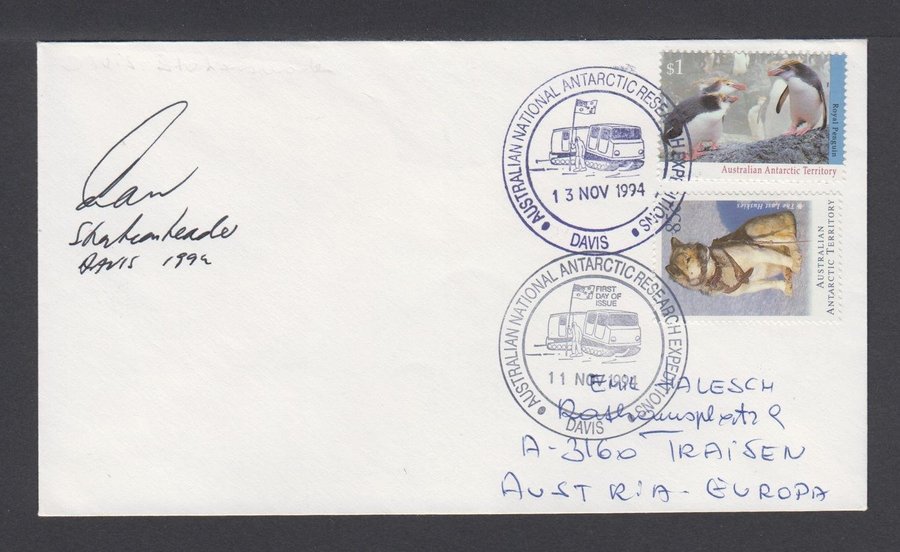 Station Leader
DAVIS 1994
AUSTRALIAN NATIONAL ANTARCTIC RESEARCH EXPEDITIONS
13 NOV 1994
DAVIS
$1
Royal Penguin
Australian Antarctic Territory
The Last Huskies
AUSTRALIAN
ANTARCTIC TERRITORY
AUSTRALIAN NATIONAL ANTARCTIC RESEARCH EXPEDITIONS
FIRST
DAY OF
ISSUE
11 NOV 1994
DAVIS
EMIL KALESCH
A-3160 TRAISEN
AUSTRIA-EUROPA